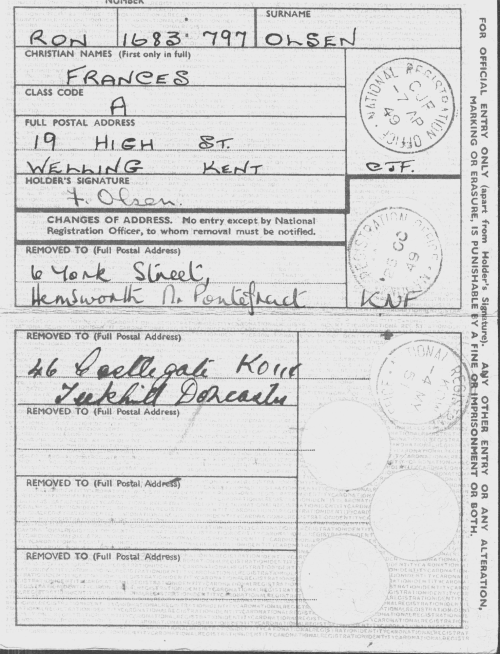 NUMBER
SURNAME
RON 1683 797 OLSEN
CHRISTIAN NAMES (First only in full)
FRANCES
CLASS CODE
A
FULL POSTAL ADDRESS
19 HIGH ST.
WELLING KENT
CJF.
HOLDER'S SIGNATURE
F. Olsen.
NATIONAL REGISTRATION OFFICE
CJF
-7 AP
49
CHANGES OF ADDRESS. No entry except by National
Registration Officer, to whom removal must be notified.
REMOVED TO (Full Postal Address)
6 York Street,
Hemsworth Nr. Pontefract
KNF
49
REMOVED TO (Full Postal Address)
46 Castlegate
Tickhill Doncaster
-4 MY
REMOVED TO (Full Postal Address)
REMOVED TO (Full Postal Address)
REMOVED TO (Full Postal Address)
FOR OFFICIAL ENTRY ONLY (apart from Holder's Signature). ANY OTHER ENTRY OR ANY ALTERATION,
MARKING OR ERASURE, IS PUNISHABLE BY A FINE OR IMPRISONMENT OR BOTH.